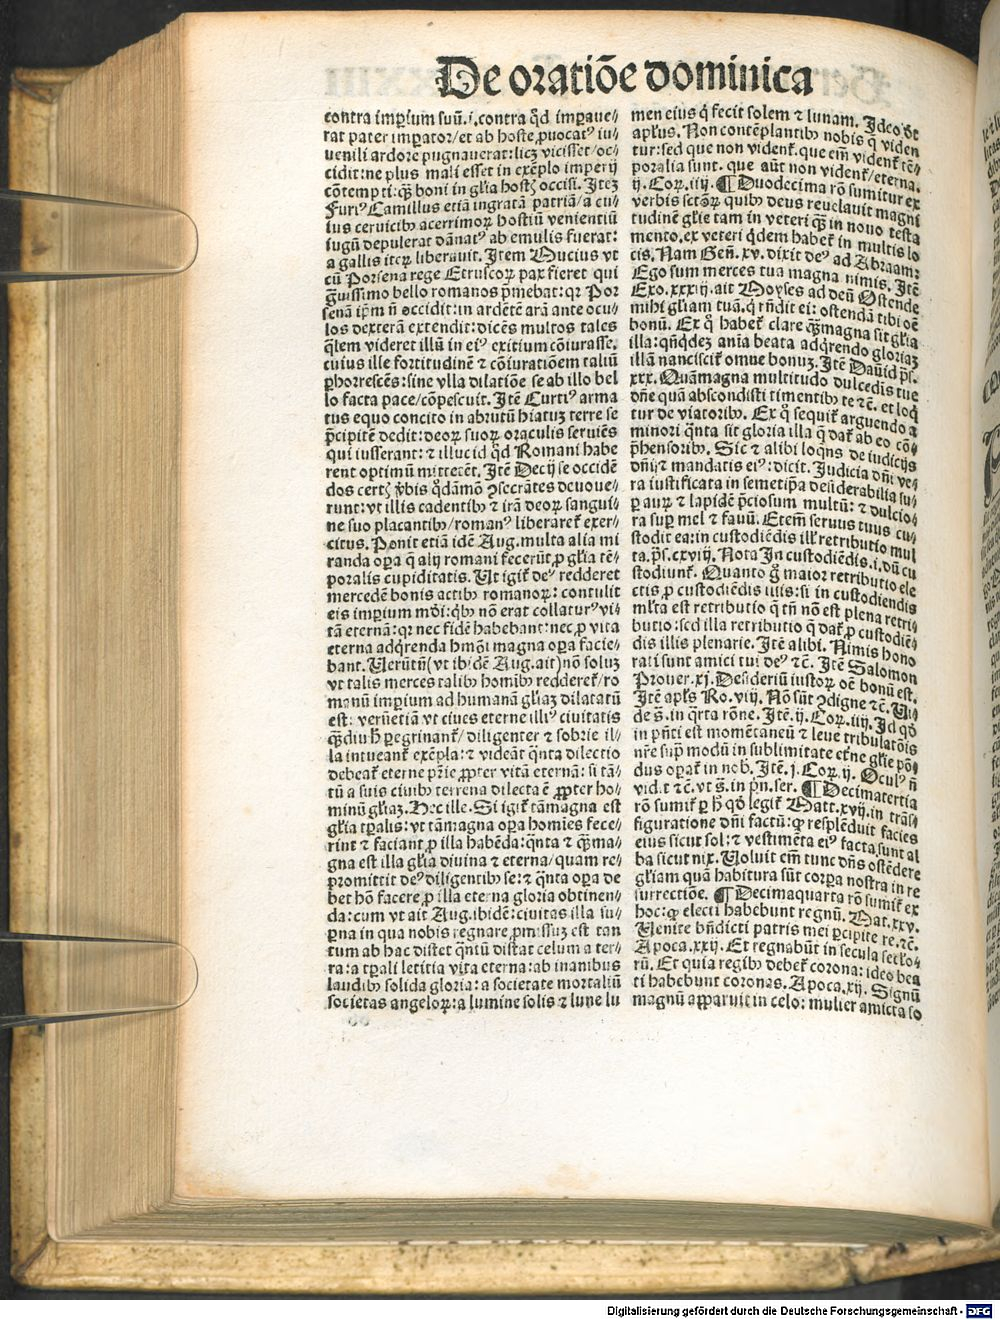 De oratiōe dominica
contra imꝑium suū.i.contra q̄d imꝑaue⸗
rat pater imꝑator/et ab hoste ꝓuocatꝰ iu⸗
uenili ardore pugnauerat:licꝫ vicisset/oc⸗
cidit:ne plus mali esset in exēplo imperij
cōtempti:q̄ꝫ boni in gl̄ia hostꝭ occisi. Itēꝫ
Furiꝰ Camillus etiā ingratā patriā/a cu⸗
ius ceruicibꝰ acerrimoꝝ hostiū venientiū
iugū depulerat dānatꝰ ab emulis fuerat:
a gallis iteꝝ liberauit. Item Mucius vt
cū Porsena rege Etruscoꝝ pax fieret qui
g̃uissimo bello romanos p̄mebat:qꝛ Por
senā ip̄m nō occidit:in ardētē arā ante ocu⸗
los dexterā extendit:dicēs multos tales
q̄lem videret illū in eiꝰ exitium cōiurasse.
cuius ille fortitudinē ⁊ cōiuratiōem taliū
ꝑhorrescēs:sine vlla dilatiōe se ab illo bel
lo facta pace/cōpescuit. Itē Curtiꝰ arma
tus equo concito in abrutū hiatuꝫ terre se
p̄cipitē dedit:deoꝝ suoꝝ oraculis seruiēs
qui iusserant:⁊ illuc id q̄d Romani habe
rent optimū mitterēt. Itē Decij se occidē
dos certꝭ v̄bis q̄dāmō ꝯsecrātes deuoue⸗
runt:vt illis cadentibꝰ ⁊ irā deoꝝ sangui⸗
ne suo placantibꝰ/romanꝰ liberaret̄ exer⸗
citus. Ponit etiā idē Aug. multa alia mi
randa oꝑa q̄ alij romani fecerūt ꝓ gl̄ia tē⸗
poralis cupiditatis. Ut igit̄ deꝰ redderet
mercedē bonis actibꝰ romanoꝝ: contulit
eis imꝑium mōi:q̄bꝰ nō erat collaturꝰ vi⸗
tā eternā:qꝛ nec fidē habebant:nec ꝓ vita
eterna adq̄renda hmōi magna oꝑa facie⸗
bant. Uerūtn̄(vt ibidē Aug.ait)nō soluꝫ
vt talis merces talibꝰ homibꝰ redderet̄/ro
manū imꝑium ad humanā gl̄iaꝫ dilatatū
est: verūetiā vt ciues eterne illiꝰ ciuitatis
q̄ꝫdiu hͦ ꝑegrinant̄/diligenter ⁊ sobrie il⸗
la intueant̄ exēpla:⁊ videāt q̄nta dilectio
debeat̄ eterne pr̄ie ꝓpter vitā eternā:si tā⸗
tū a suis ciuibꝰ terrena dilecta ē ꝓpter ho⸗
minū gl̄iaꝫ. Hec ille. Si igit̄ tāmagna est
gl̄ia tꝑalis:vt tāmagna oꝑa homīes fece⸗
rint ⁊ faciant ꝓ illa habēda:q̄nta ⁊ q̄ꝫma⸗
gna est illa gl̄ia diuina ⁊ eterna/quam re⸗
ꝓmittit deꝰ diligentibꝰ se:⁊ q̄nta oꝑa de
bet hō facere ꝓ illa eterna gloria obtinen⸗
da:cum vt ait Aug.ibidē:ciuitas illa su⸗
ꝑna in qua nobis regnare ꝓmissuꝫ est tan
tum ab hac distet q̄ntū distat celum a ter⸗
ra:a tꝑali letitia vita eterna:ab inanibus
laudibꝰ solida gloria:a societate mortaliū
societas angeloꝝ:a lumine solis ⁊ lune lu
men eius q̄ fecit solem ⁊ lunam. Ideo dt̄
apl̄us. Non contēplantibꝰ nobis q̄ viden
tur:sed que non vident̄.que em̄ vident̄ tē⸗
poralia sunt. que aūt non vident̄/eterna.
ij. Coꝝ.iiij. ¶ Duodecima rō sumitur ex
verbis sctōꝝ quibꝰ deus reuelauit magni
tudinē gl̄ie tam in veteri q̄ꝫ in nouo testa
mento.ex veteri q̄dem habet̄ in multis lo
cis. Nam Geñ. xv. dixit deꝰ ad Abraam:
Ego sum merces tua magna nimis. Itē
Exo.xxxiij.ait Moyses ad deū Ostende
mihi gl̄iam tuā.q̄ rn̄dit ei: ostendā tibi oē
bonū. Ex q̊ habet̄ clare q̄ꝫmagna sit gl̄ia
illa:qn̄q̄deꝫ aīa beata adq̄rendo gloriaꝫ
illā nanciscit̄ omne bonuꝫ. Itē Dauid pš.
xxx. Quāmagna multitudo dulcedīs tue
dn̄e quā abscondisti timentibꝰ te ⁊c̄. et loq̄
tur de viatoribꝰ. Ex q̊ sequit̄ arguendo a
minori q̄nta sit gloria illa q̄ dat̄ ab eo cō⸗
p̄hensoribꝰ. Sic ⁊ alibi loq̄ns de iudicijs
dn̄ij ⁊ mandatis eiꝰ: dicit. Judicia dn̄i ve⸗
ra iustificata in semetip̄a desiderabilia su⸗
ꝑ auꝝ ⁊ lapidē p̄ciosum multū: ⁊ dulcio⸗
ra suꝑ mel ⁊ fauū. Etem̄ seruus tuus cu⸗
stodit ea:in custodiēdis ill̄ retributio mul
ta.pš.cxviij. Nota In custodiēdis.i.dū cu
stodiunt̄. Quanto g̊ maior retributio ele
ctis ꝓ custodiēdis illis:si in custodiendis
ml̄ta est retributio q̄ tn̄ nō est plena retri⸗
butio:sed illa retributio q̄ dat̄ ꝓ custodiē⸗
dis illis plenarie. Itē alibi. Nimis hono
rati sunt amici tui deꝰ ⁊c̄. Itē Salomon
Prouer.xj. Desideriū iustoꝝ oē bonū est.
Itē apl̄s Ro. viij. Nō sūt ꝯdigne ⁊c̄. Ui⸗
de š. in q̄rta rōne. Itē.ij. Coꝝ.iiij. Id qd̄
in pn̄ti est momētaneū ⁊ leue tribulatōis
nr̄e sup̄ modū in sublimitate et̄ne gl̄ie pō⸗
dus oꝑat̄ in nob. Itē.j. Coꝝ.ij. Oculꝰ nō
vidit ⁊c̄.vt š.in p̄n.ser. ¶ Decimatertia
rō sumit̄ ꝑ hͦ qd̄ legit̄ Matt.xvij.in trās⸗
figuratione dn̄i factū:qꝙ resplēduit facies
eius sicut sol:⁊ vestimēta eiꝰ facta sunt al
ba sicut nix. Uoluit em̄ tunc dn̄s ostēdere
gl̄iam quā habitura sūt corꝑa nostra in re
surrectiōe. ¶ Decimaquarta rō sumit̄ ex
hoc:qꝙ electi habebunt regnū. Mat. xxv.
Uenite bn̄dicti patris mei ꝑcipite re.⁊c̄.
Apoca.xxij. Et regnabūt in secula sec̄lo⸗
rū. Et quia regibꝰ debet̄ corona: ideo bea
ti habebunt coronas. Apoca.xij. Signū
magnū apparuit in celo: mulier amicta so
Digitalisierung gefördert durch die Deutsche Forschungsgemeinschaft - DFG